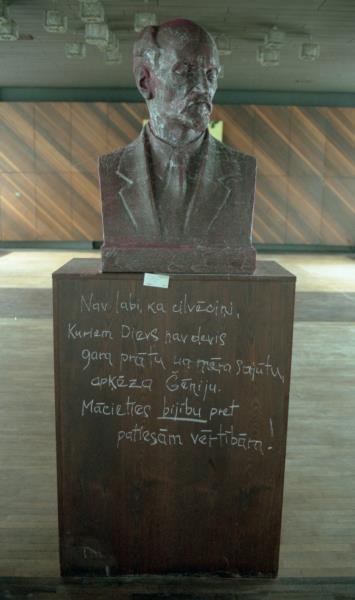 Nav labi, ka cilvēciņi,
Kuriem Dievs nav devis
gara prātu un mēra sajūtu,
apķēza Ģēniju.
Mācieties bijību pret
patiesām vērtībām!